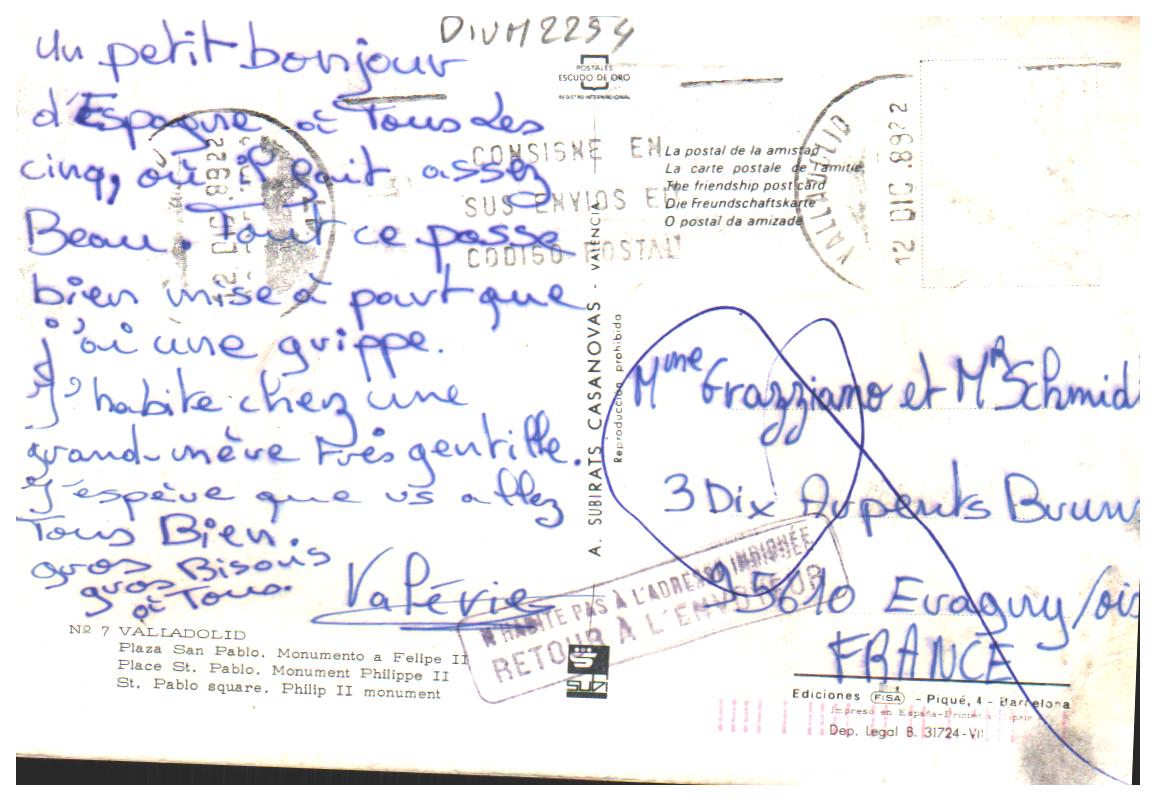 DIVM2294
Un petit bonjour
d'Espagne à Tous Les
cinq, où il fait assez
Beau. Tout ce passe
bien mise à part que
j'ai une grippe.
J'habite chez une
grand-mère très gentille.
J'espère que vs allez
Tous Bien.
gros Bisous
gros Bisous
à Tous.
Valérie
Nº 7 VALLADOLID
Plaza San Pablo. Monumento a Felipe II
Place St. Pablo. Monument Philippe II
St. Pablo square. Philip II monument
POSTALES
ESCUDO DE ORO
REGISTRO INTERNACIONAL
CONSIGNE EN
SUS ENVIOS EL
CODIGO POSTAL
La postal de la amistad
La carte postale de l'amitié
The friendship post card
Die Freundschaftskarte
O postal da amizade
VALLADOLID
12 DIC. 89 22
12 DIC 89 22
A. SUBIRATS CASANOVAS - VALENCIA
Reproducción prohibida
Mme Grazziano et Mr Schmid
3 Dix Arpents Bruns
95610 Eragny/ois
FRANCE
N'HABITE PAS À L'ADRESSE INDIQUÉE
RETOUR À L'ENVOYEUR
SUDI
Ediciones FISA - Piqué, 4 - Barcelona
Impreso en España-Printed
Dep. Legal B. 31724-VII